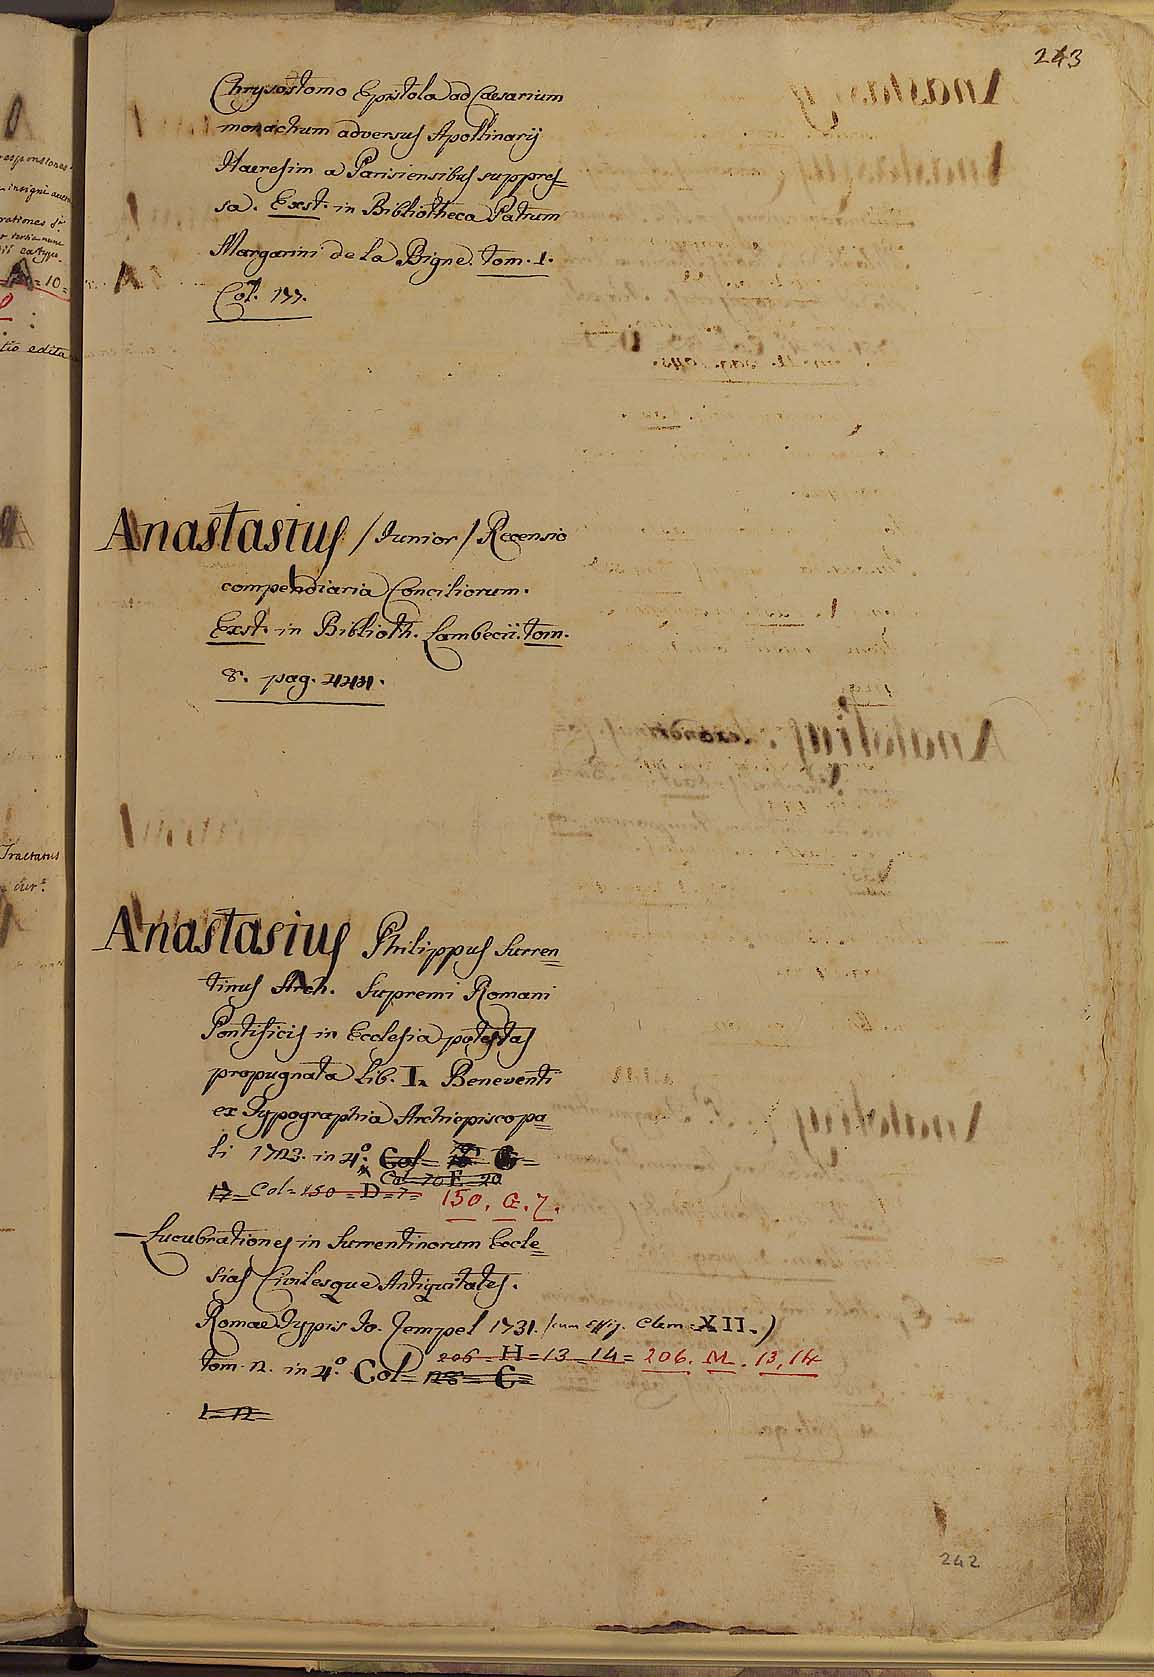 243
Chrysostomo Epistola ad Caesarium
monachum adversus Apollinarij
Haeresim a Parisiensibus suppres=
sa. Exst. in Bibliotheca Patrum
Margarini de la Bigne. tom. 1.
Col.
Anastasius /Junior/ Recensio
compendiaria Conciliorum.
Exst. in Biblioth. Lambecii. tom.
8. pag.
Anastasius Philippus Surren=
tinus Arch. Supremi Romani
Pontificis in Ecclesia potestas
propugnata Lib. I. Beneventi
ex Typographia Archiepiscopa=
li 1723. in 4.° Col=
Col=70 E=20
17= Col=150=D=7= 150. G. 7.
— Lucubrationes in Surrentinorum Eccle=
sias Civilesque Antiquitates.
Romae Typis Jo. Zempel 1731. (cum Effig. Clem. XII.)
206=H=13 14= 206. M. 13, 14
tom. 2. in 4.° Col= 128= C=
1=2=
242
responsiones
insigni
rationes
= 10 =
tio edita
Tractatus
cur.